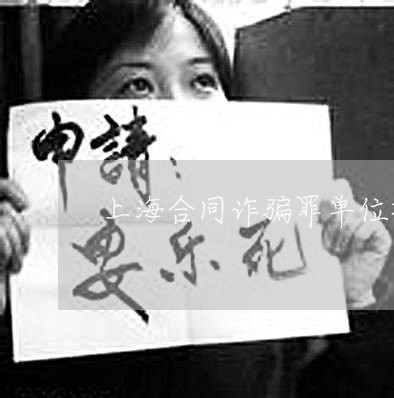 申請：
上海合同诈骗罪单位
安乐死